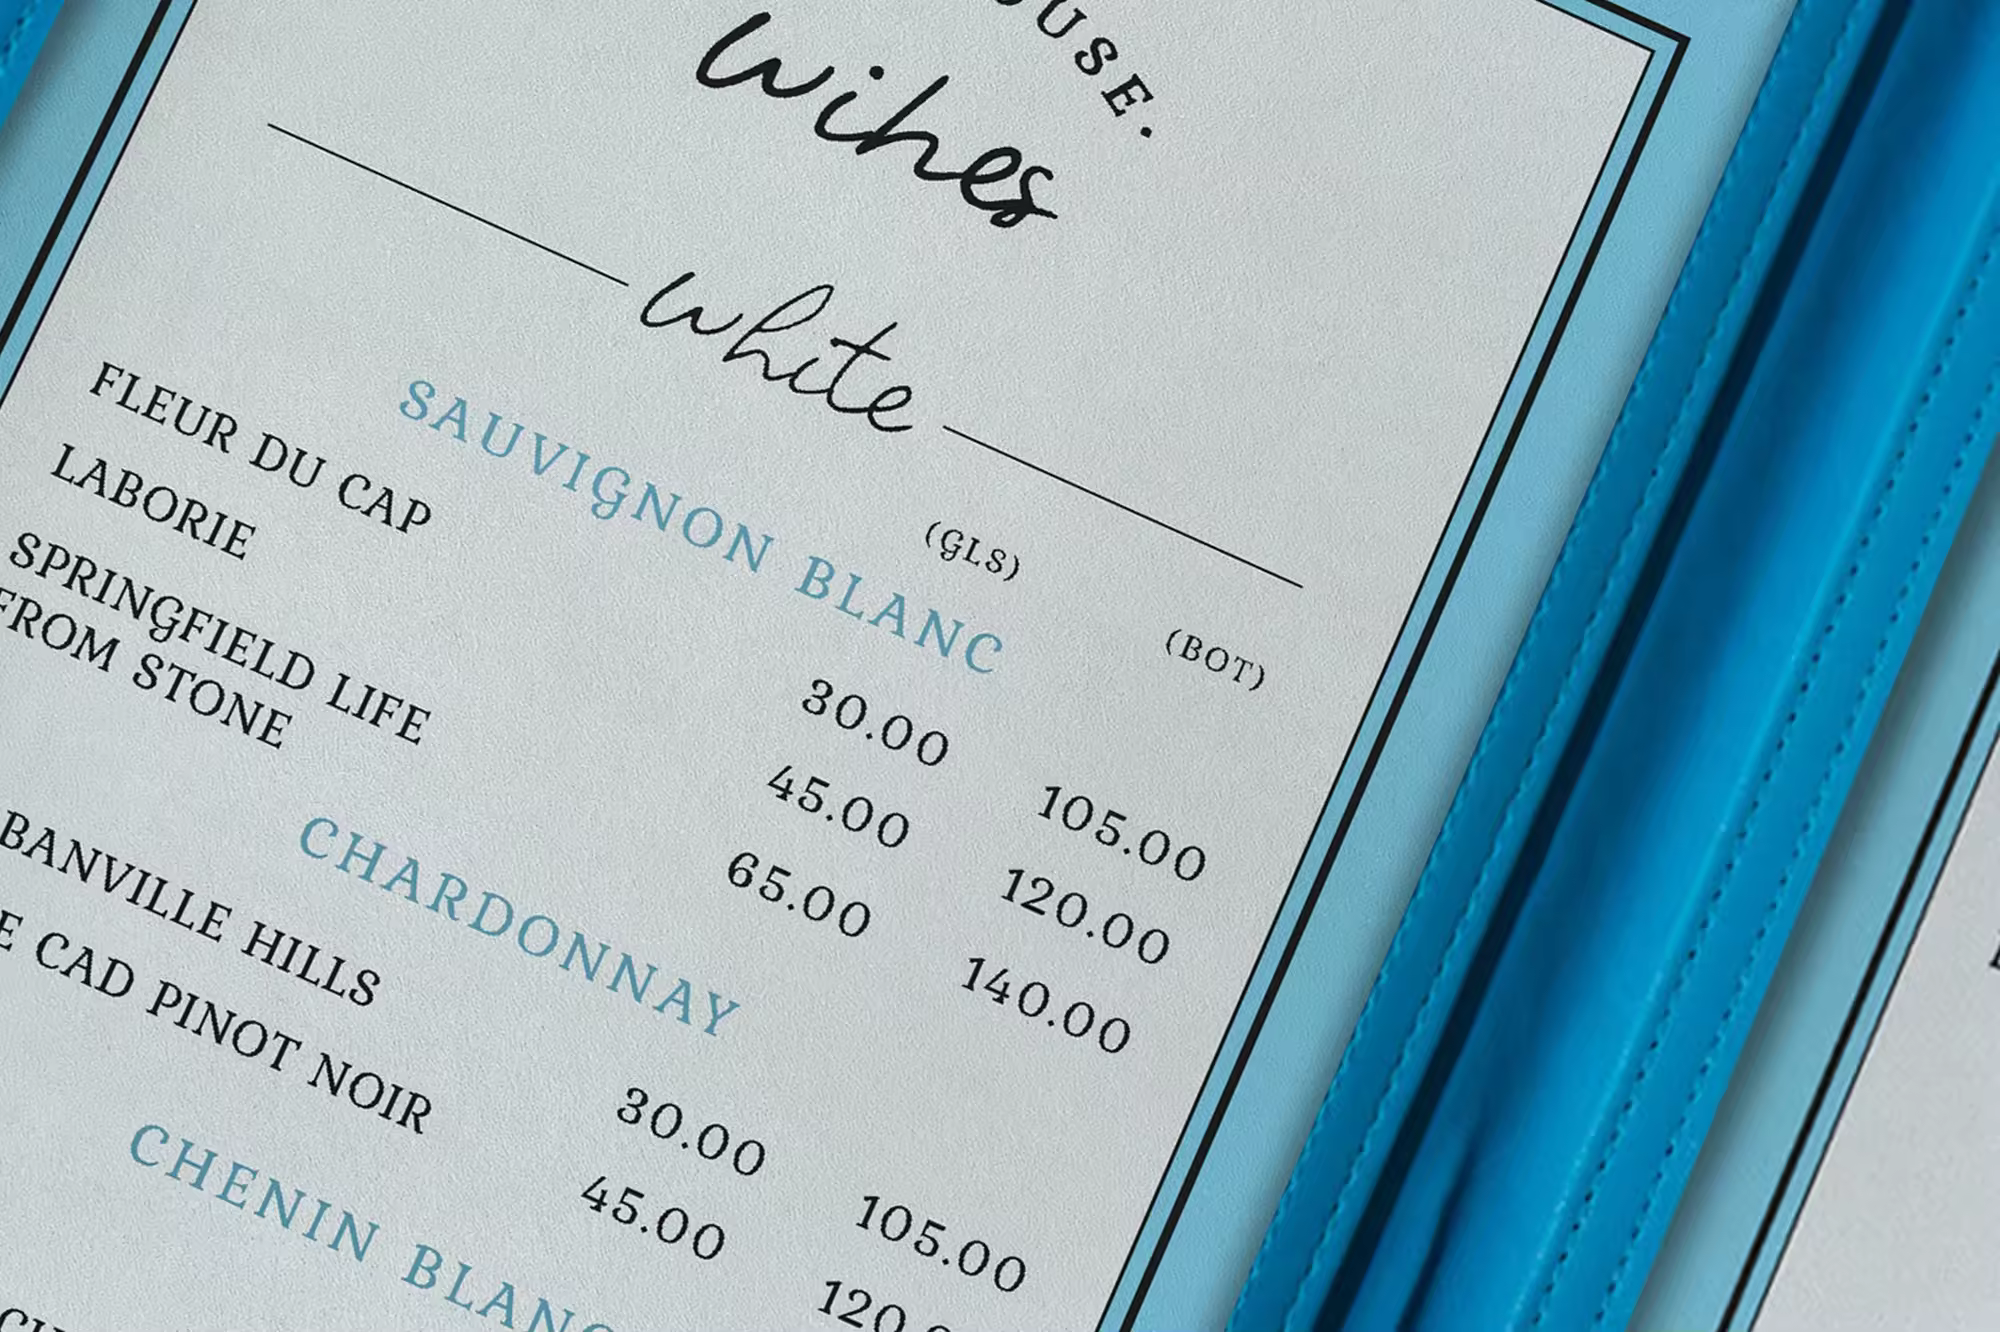 wines
white
(GLS) (BOT)
SAUVIGNON BLANC
FLEUR DU CAP 30.00 105.00
LABORIE 45.00 120.00
SPRINGFIELD LIFE 65.00 140.00
FROM STONE
CHARDONNAY
BANVILLE HILLS 30.00 105.00
CAD PINOT NOIR 45.00
CHENIN BLANC